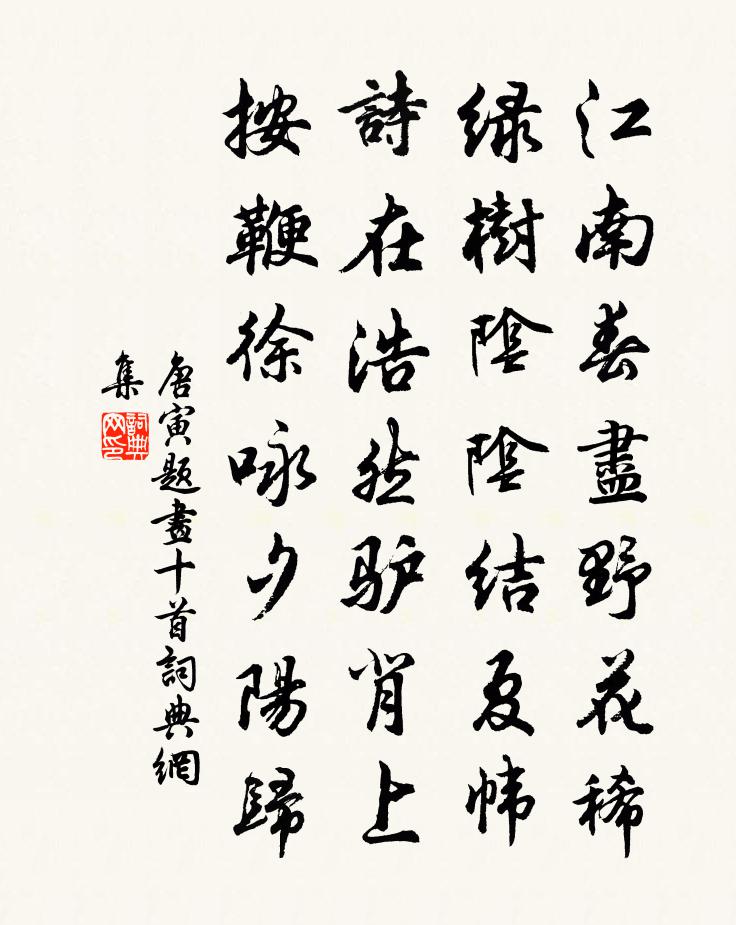 江南春盡野花稀
绿樹陰陰结夏帏
詩在浩然驴背上
按鞭徐咏夕陽歸
唐寅題畫十首詞典網
集
詞典
网印